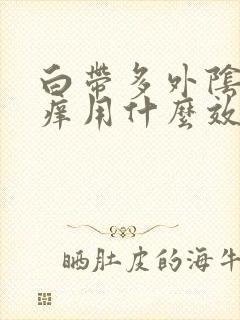 白帶多外陰
癢用什麼效
晒肚皮的海牛